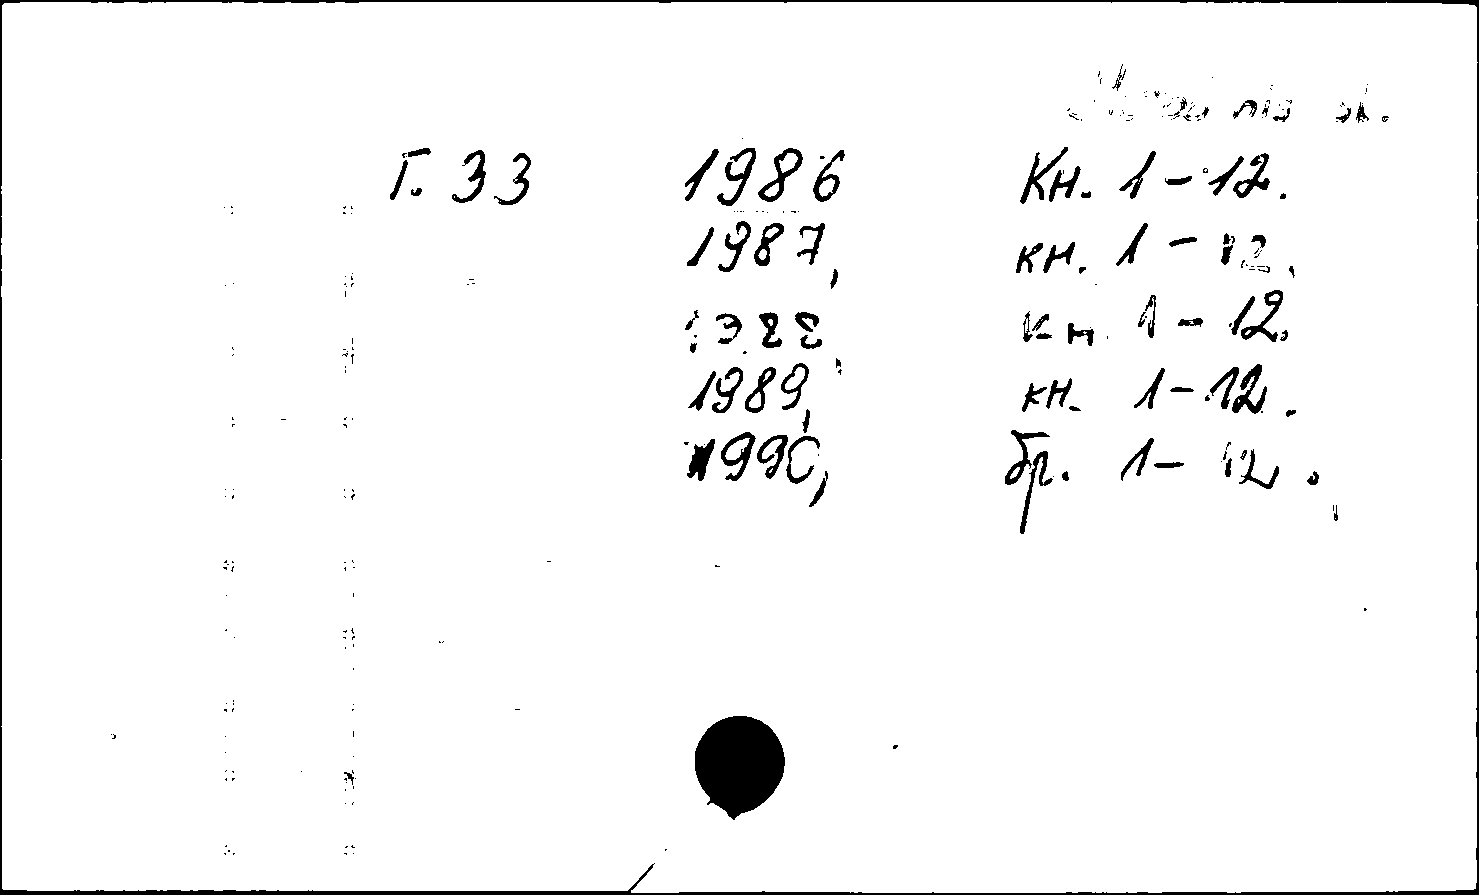 Г. 33 1986 Кн. 1-12.
1987, кн. 1-12.
1988, кн. 1-12.
1989, кн. 1-12.
1990, бр. 1-12.